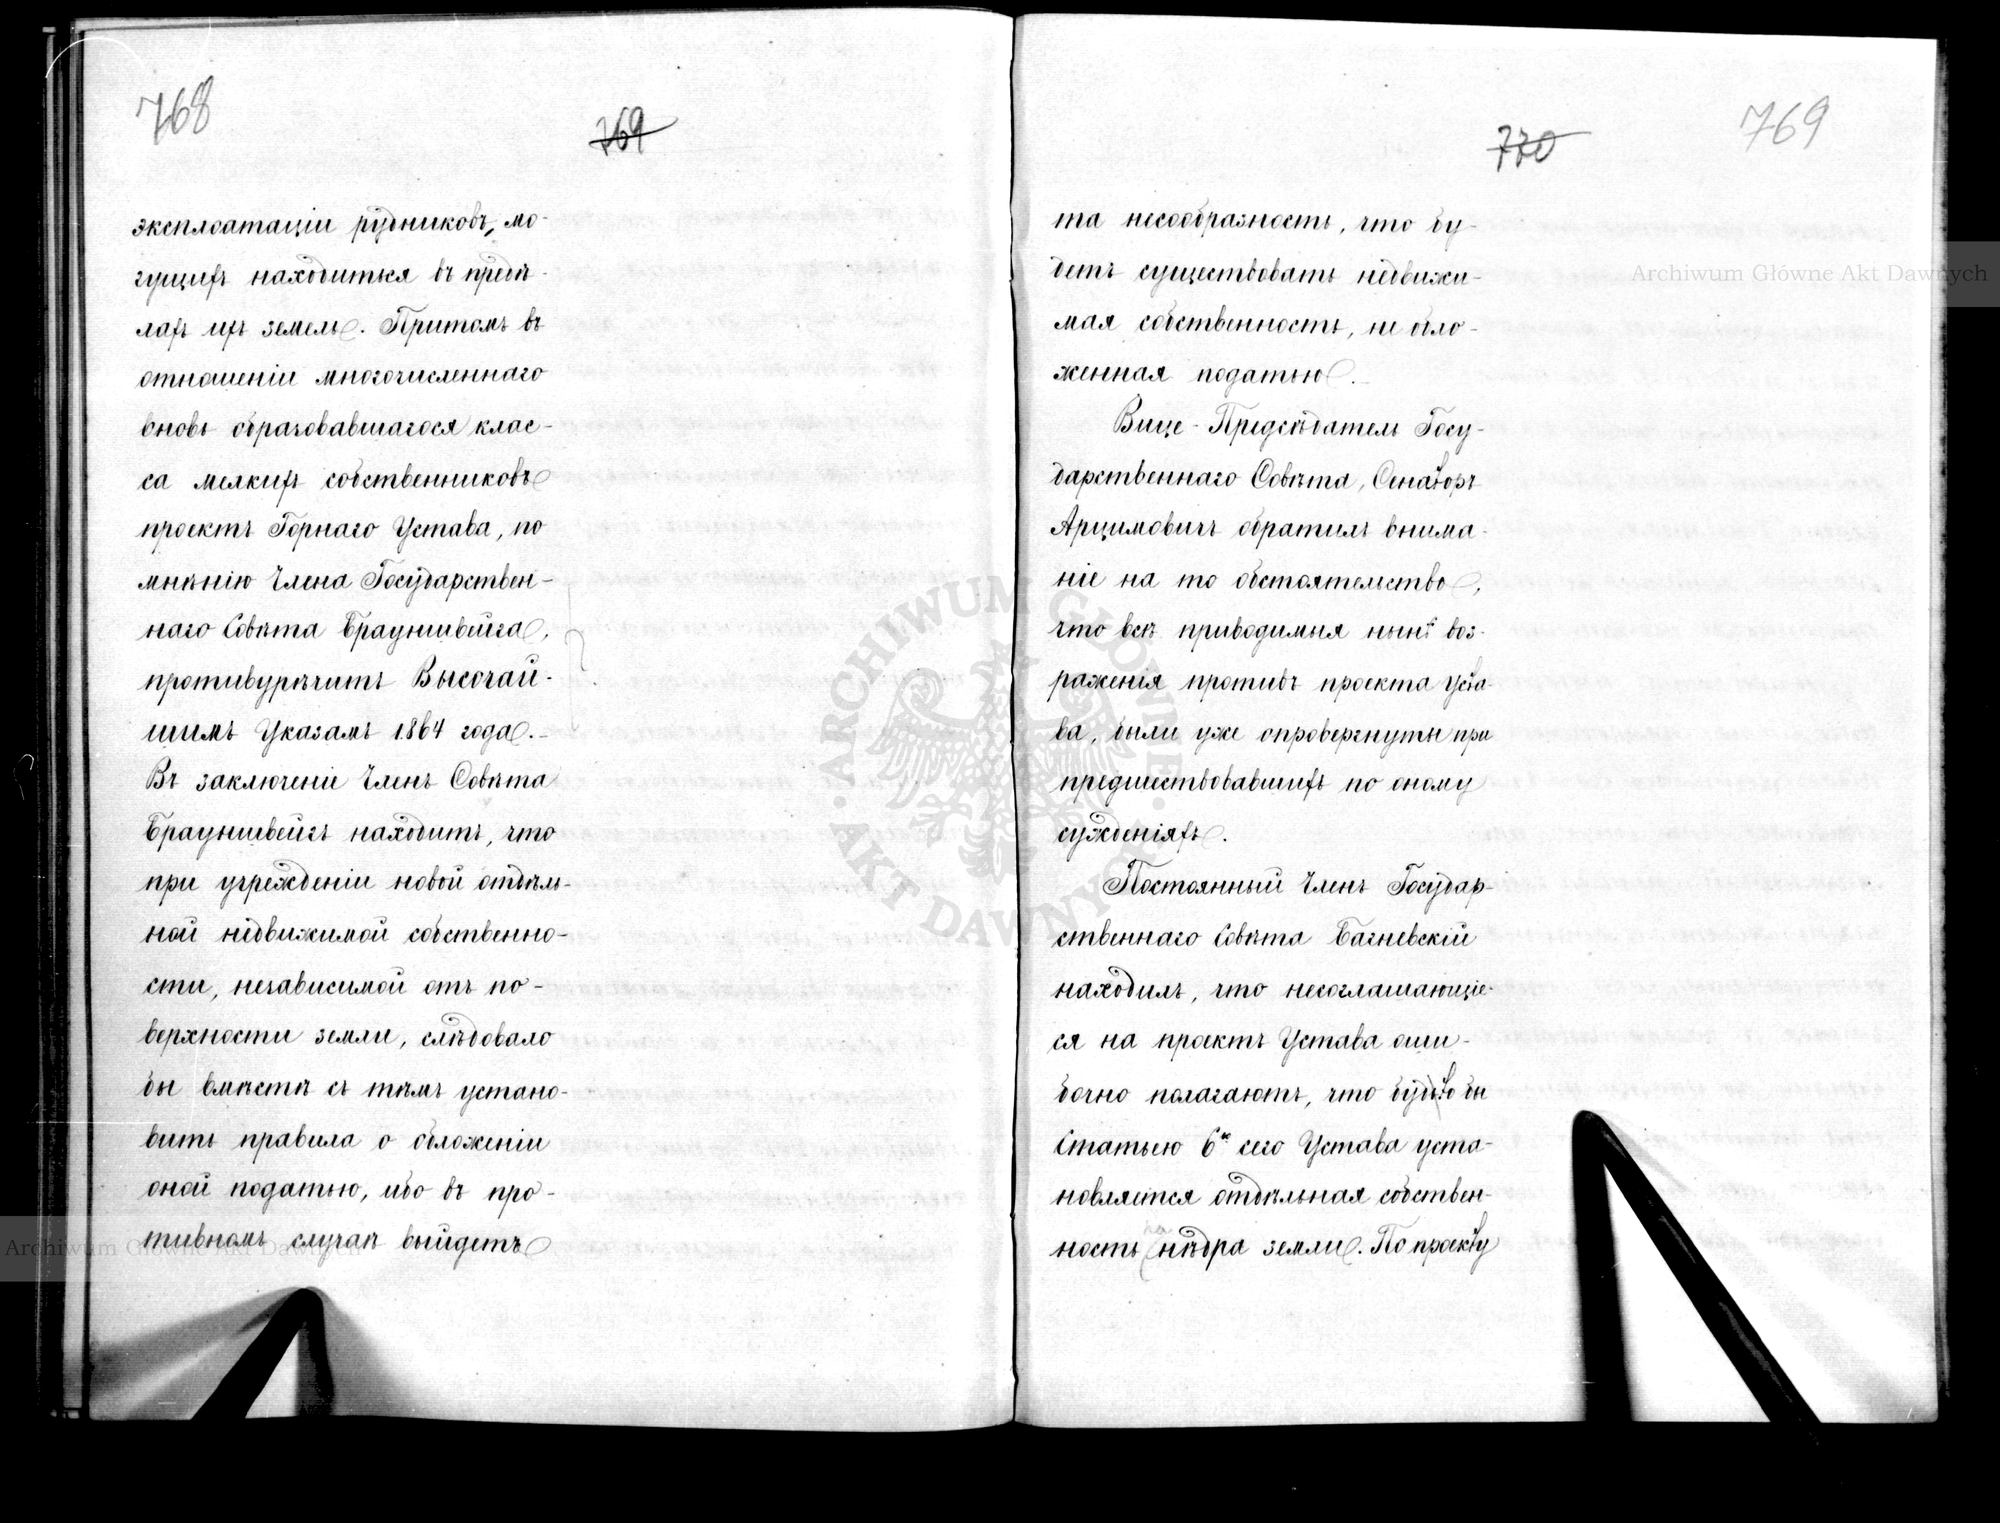 768
769
эксплоатаціи рудниковъ, мо-
гущихъ находиться въ предѣ-
лахъ ихъ земель. Притомъ въ
отношеніи многочисленнаго
вновь образовавшагося клас-
са мелкихъ собственниковъ
проектъ Горнаго Устава, по
мнѣнію Члена Государствен-
наго Совѣта Брауншвейга,
противурѣчитъ Высочай-
шимъ Указамъ 1864 года.-
Въ заключеніе Членъ Совѣта
Брауншвейгъ находитъ, что
при учрежденіи новой отдѣль-
ной недвижимой собственно-
сти, независимой отъ по-
верхности земли, слѣдовало
бы вмѣстѣ съ тѣмъ устано-
вить правила о обложеніи
оной податью, ибо въ про-
тивномъ случаѣ выйдетъ
770
769
та несообразность, что бу-
детъ существовать недвижи-
мая собственность, не обло-
женная податью.-
Вице-Предсѣдатель Госу-
дарственнаго Совѣта, Сенаторъ
Арцимовичъ обратилъ внима-
ніе на то обстоятельство,
что всѣ приводимыя нынѣ воз-
раженія противъ проекта Уста-
ва, были уже опровергнуты при
предшествовавшихъ по оному
сужденіяхъ.
Постоянный Членъ Государ-
ственнаго Совѣта Багневскій
находилъ, что несоглашающіе-
ся на проектъ Устава оши-
бочно полагаютъ, что будто бы
Статьею 6ю сего Устава уста-
новляется отдѣльная собствен-
ность на нѣдра земли. По проекту
Archiwum Główne Akt Dawnych
ARCHIWUM GŁÓWNE · AKT DAWNYCH ·
Archiwum Główne Akt Dawnych